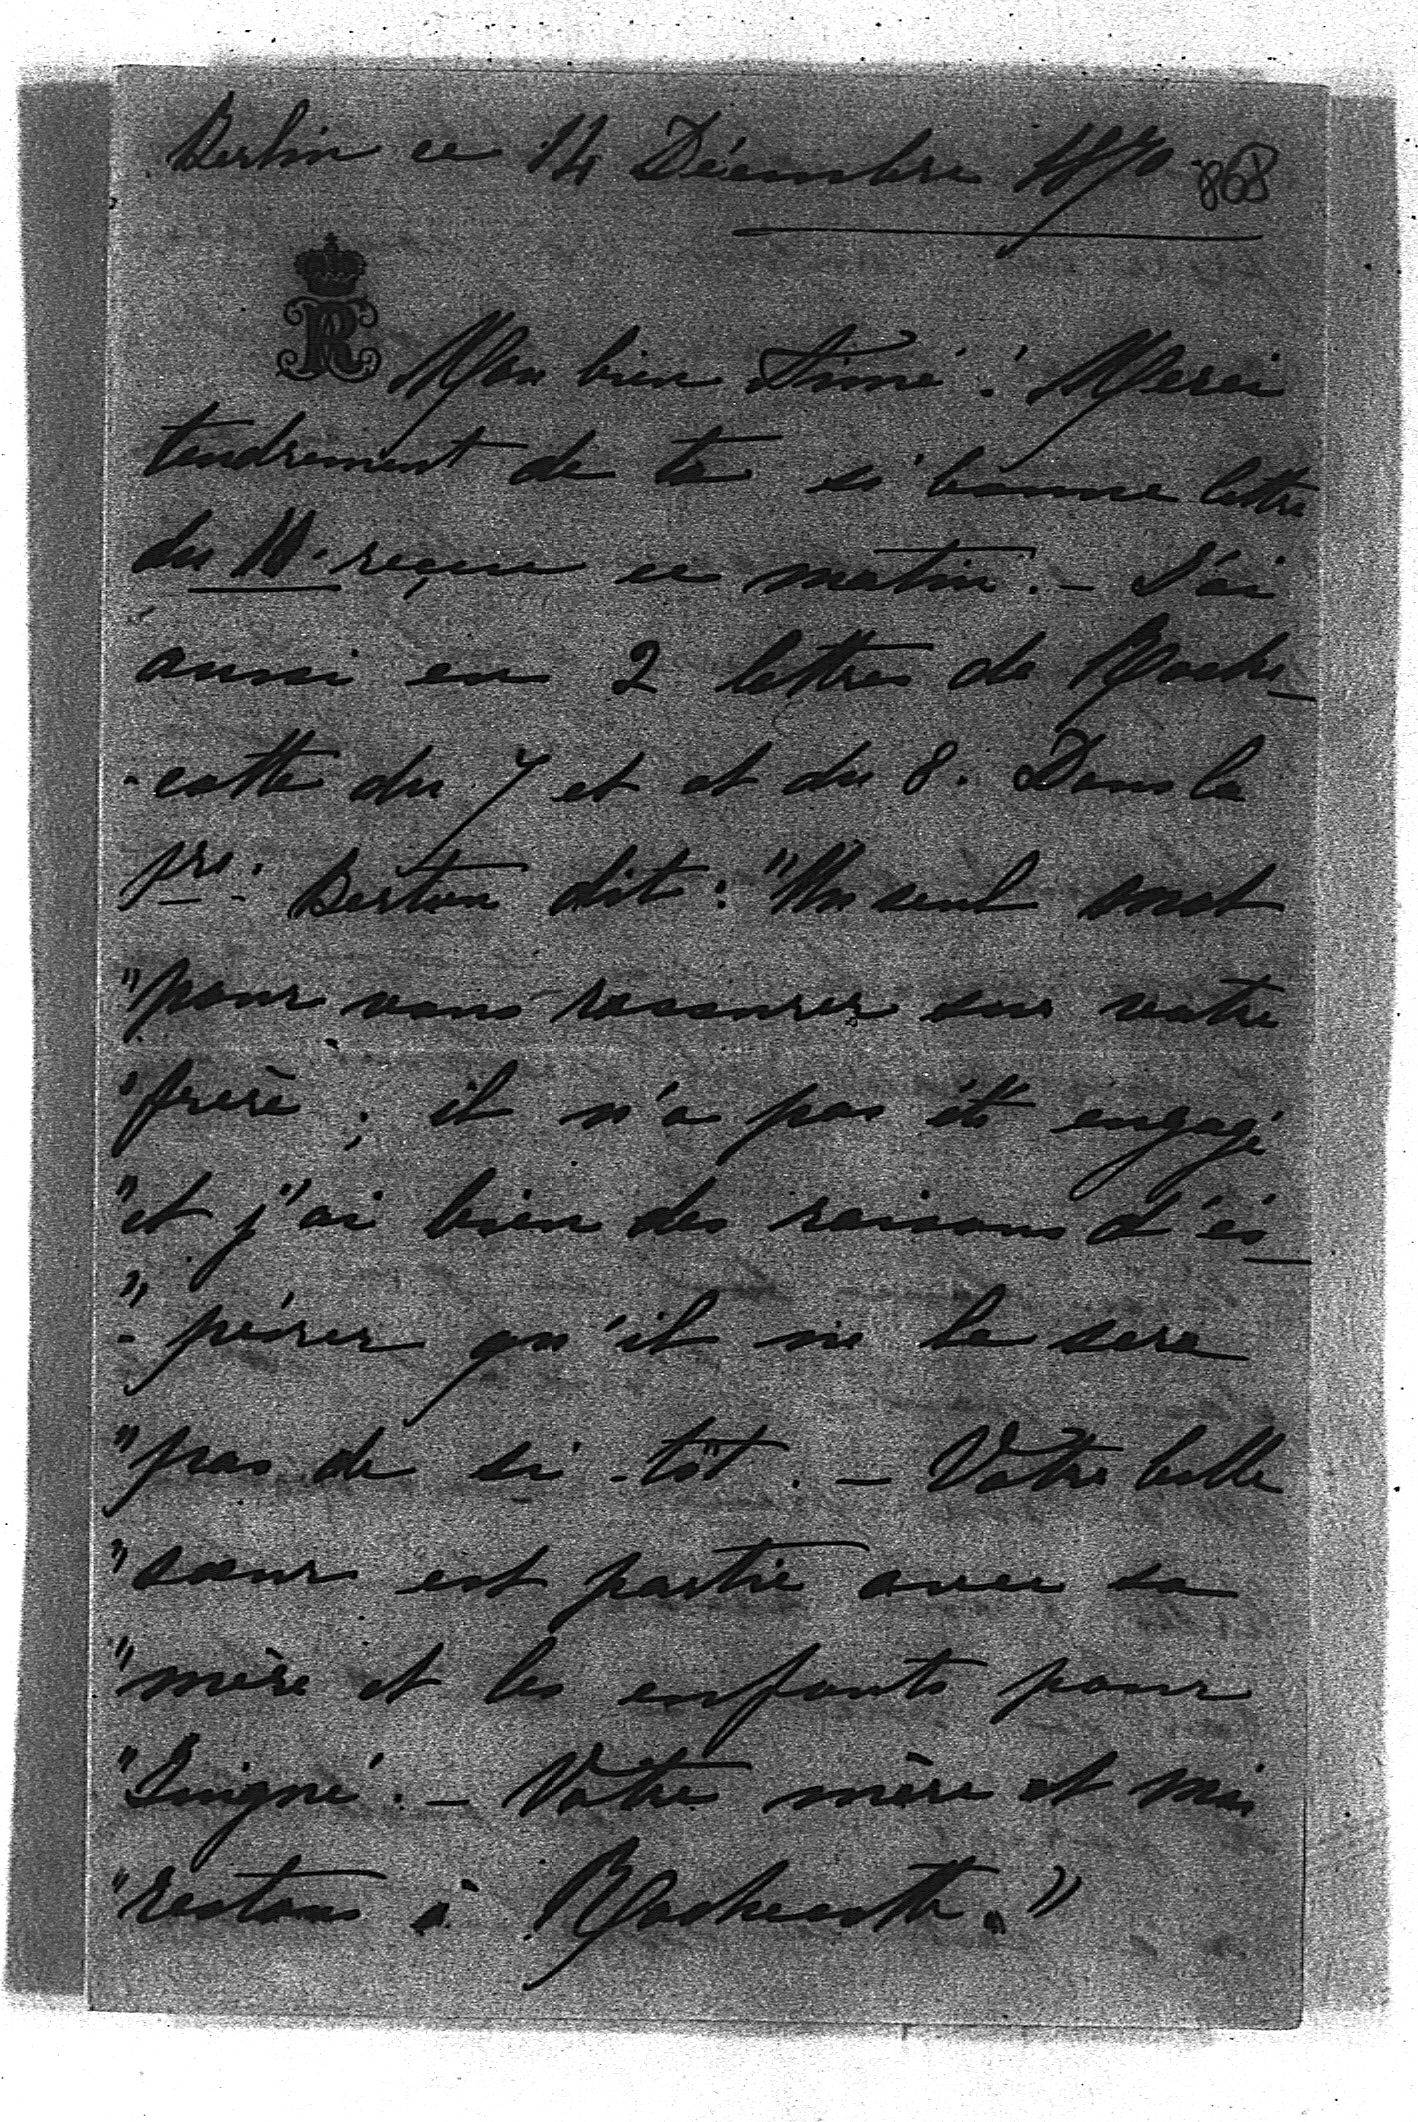 Berlin ce 14 Décembre 1870
868
R
Mon bien Aimé! Merci
tendrement de ta si bonne lettre
du 11. reçue ce matin. – J'ai
aussi eu 2 lettres de Roche-
-cotte du 7 et et du 8. Dans la
pre. Berton dit: "Un seul mot
"pour vous rassurer sur votre
"frère; il n'a pas été engagé
"et j'ai bien des raisons d'és-
"-pérer qu'il ne le sera
"pas de si-tôt. – Votre belle
"sœur est partie avec sa
"mère et les enfants pour
" – Votre mère et moi
"restons à Rochecotte."